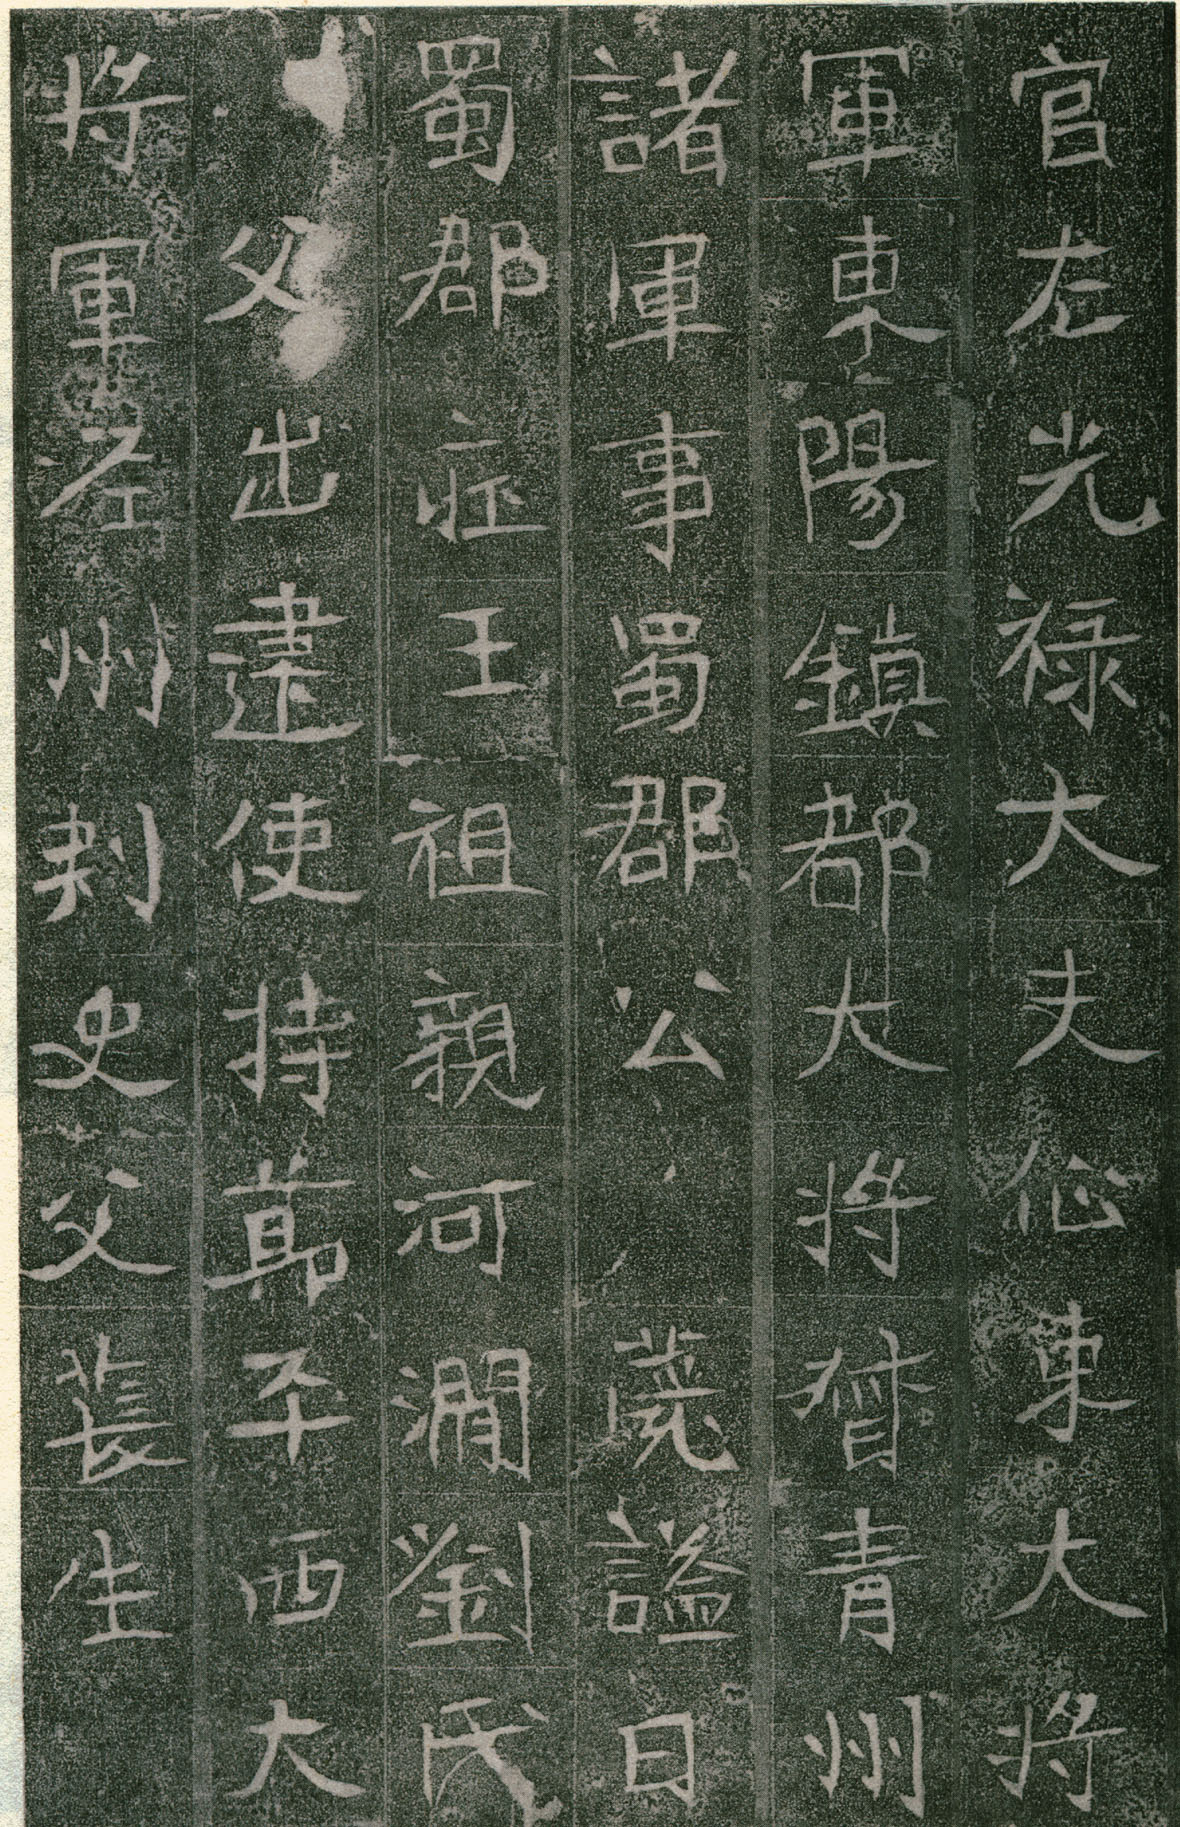 官左光禄大夫征東大將
軍東陽鎮都大將督青州
諸軍事蜀郡公薨諡曰
蜀郡莊王祖親河澗劉氏
父出建使持節平西大
將軍州刾史父萇生